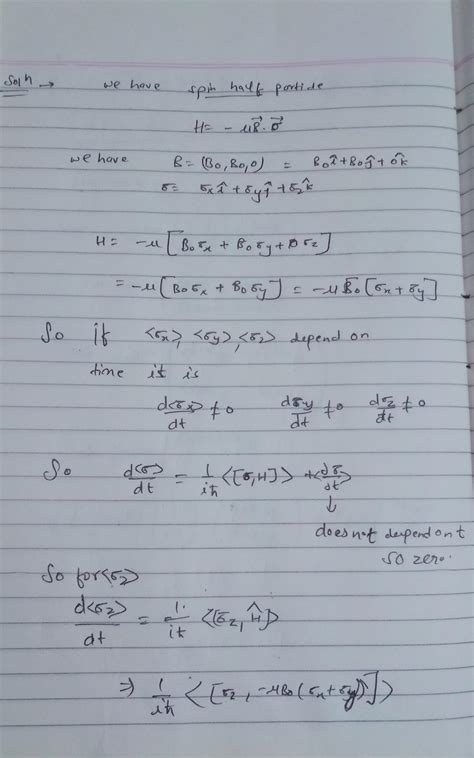 Soln → we have spin half particle
H = - μB⃗·σ⃗
we have B = (B₀, B₀, 0) = B₀î + B₀ĵ + 0k̂
σ = σₓî + σ_yĵ + σ_zk̂
H = -μ[B₀σₓ + B₀σ_y + 0σ_z]
= -μ[B₀σₓ + B₀σ_y] = -μB₀[σₓ + σ_y]
So if <σₓ>, <σ_y>, <σ_z> depend on
time it is
d<σₓ>/dt ≠ 0 dσ_y/dt ≠ 0 dσ_z/dt ≠ 0
So d<σ>/dt = 1/iħ <[σ, H]> + <dσ/dt>
↓
does not depend on t
so zero.
So for <σ_z>
d<σ_z>/dt = 1/iħ <[σ_z, Ĥ]>
⇒ 1/iħ <[σ_z, -μB₀(σₓ + σ_y)]>